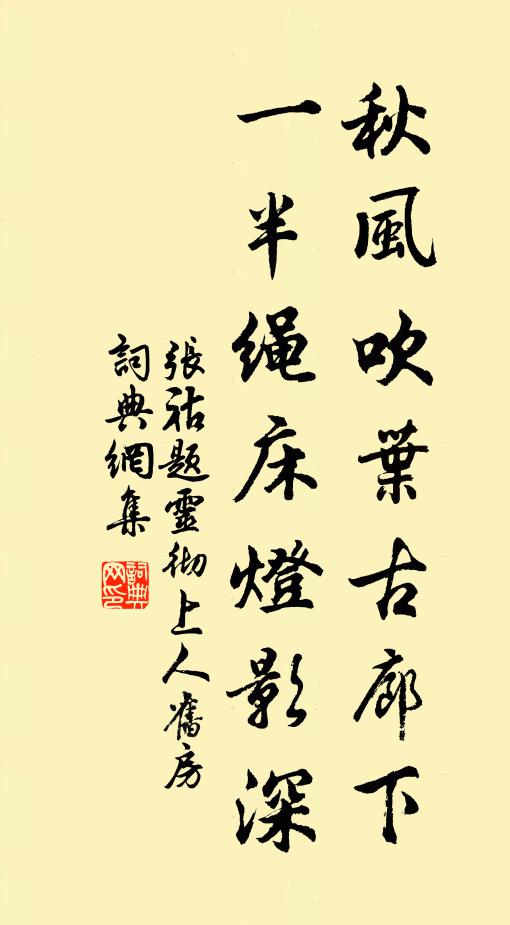 秋風吹葉古廊下
一半繩床燈影深
張祜題靈彻上人舊房
詞典網集
詞典
网印